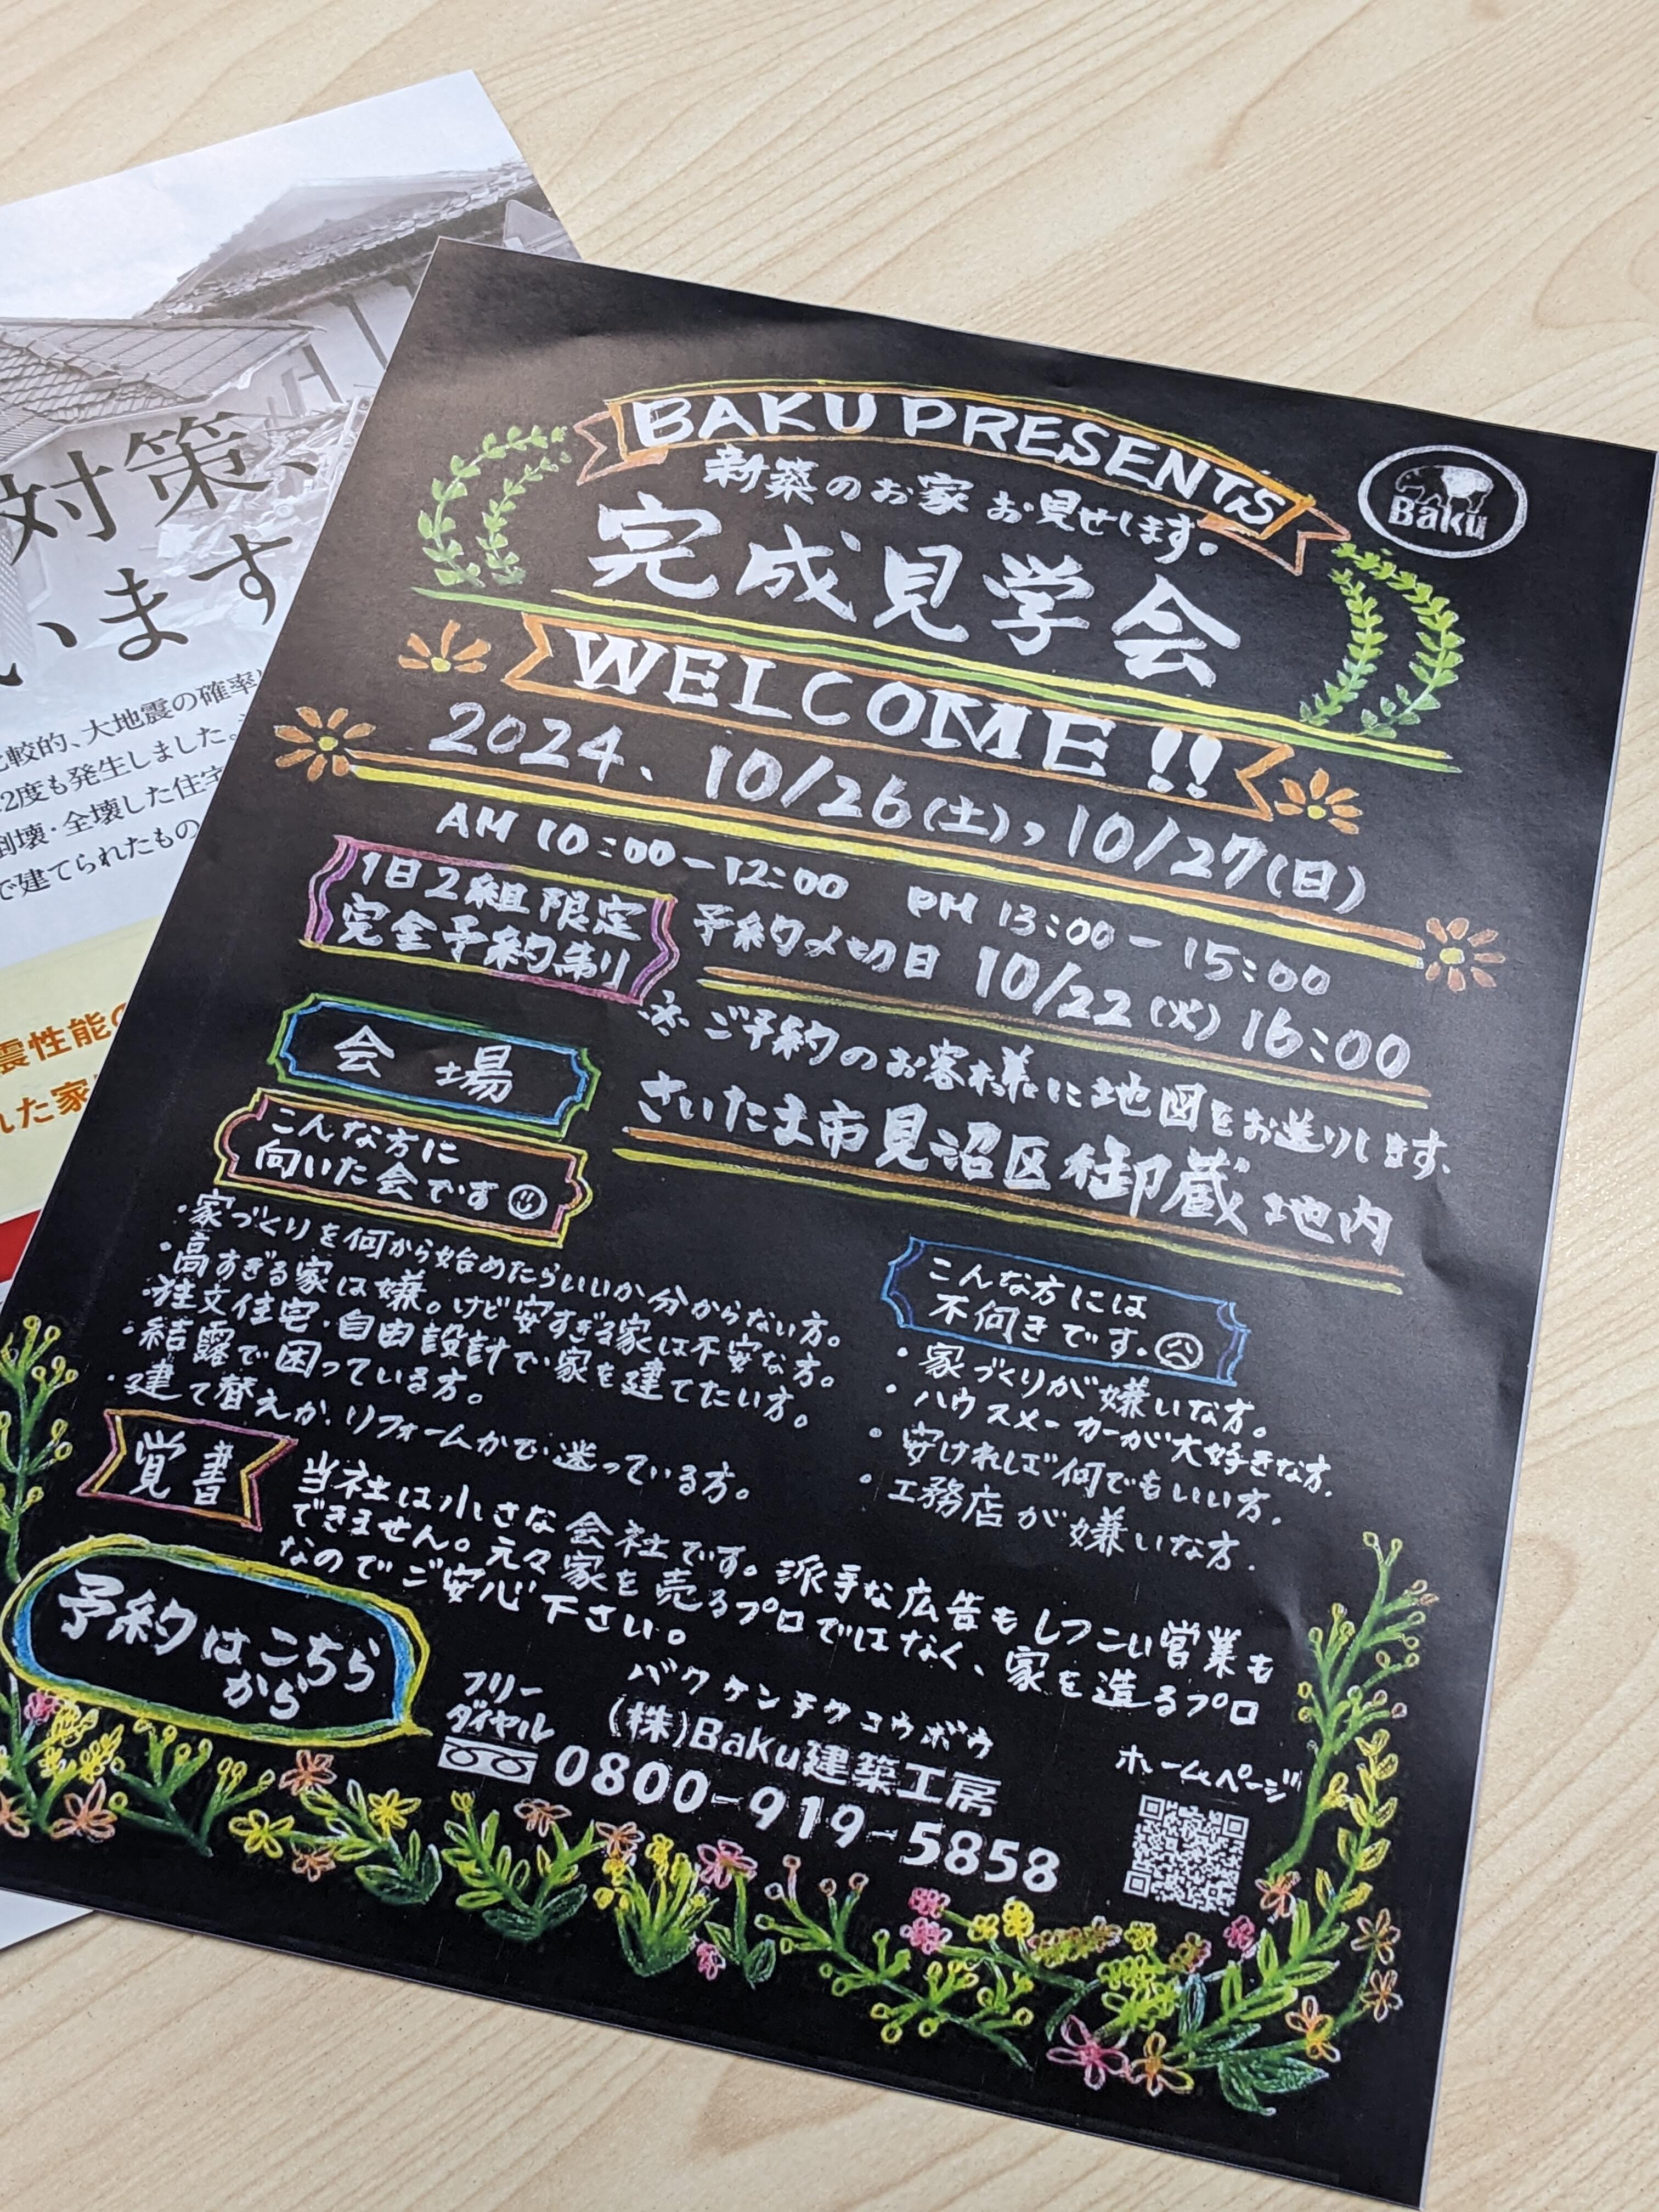 BAKU PRESENTS
新築のお家お見せします。
完成見学会
Baku
WELCOME!!
2024、10/26(土)，10/27(日)
AM 10:00－12:00 PM 13:00－15:00
1日2組限定
完全予約制
予約〆切日 10/22(火) 16:00
※ご予約のお客様に地図をお送りします。
会場
さいたま市見沼区御蔵地内
こんな方に
向いた会です
・家づくりを何から始めたらいいか分からない方。
・高すぎる家は嫌。けど安すぎる家は不安な方。
・注文住宅・自由設計で家を建てたい方。
・結露で困っている方。
・建て替えか、リフォームかで迷っている方。
こんな方には
不向きです。
・家づくりが嫌いな方。
・ハウスメーカーが大好きな方。
・安ければ何でもいい方。
・工務店が嫌いな方。
覚書
当社は小さな会社です。派手な広告もしつこい営業も
できません。元々家を売るプロではなく、家を造るプロ
なのでご安心下さい。
予約はこちら
から
フリー
ダイヤル
バクケンチクコウボウ
(株)Baku建築工房
0800-919-5858
ホームページ
対策、
います
較的、大地震の確率
2度も発生しました。
倒壊・全壊した住宅
で建てられたもの
震性能の
れた家